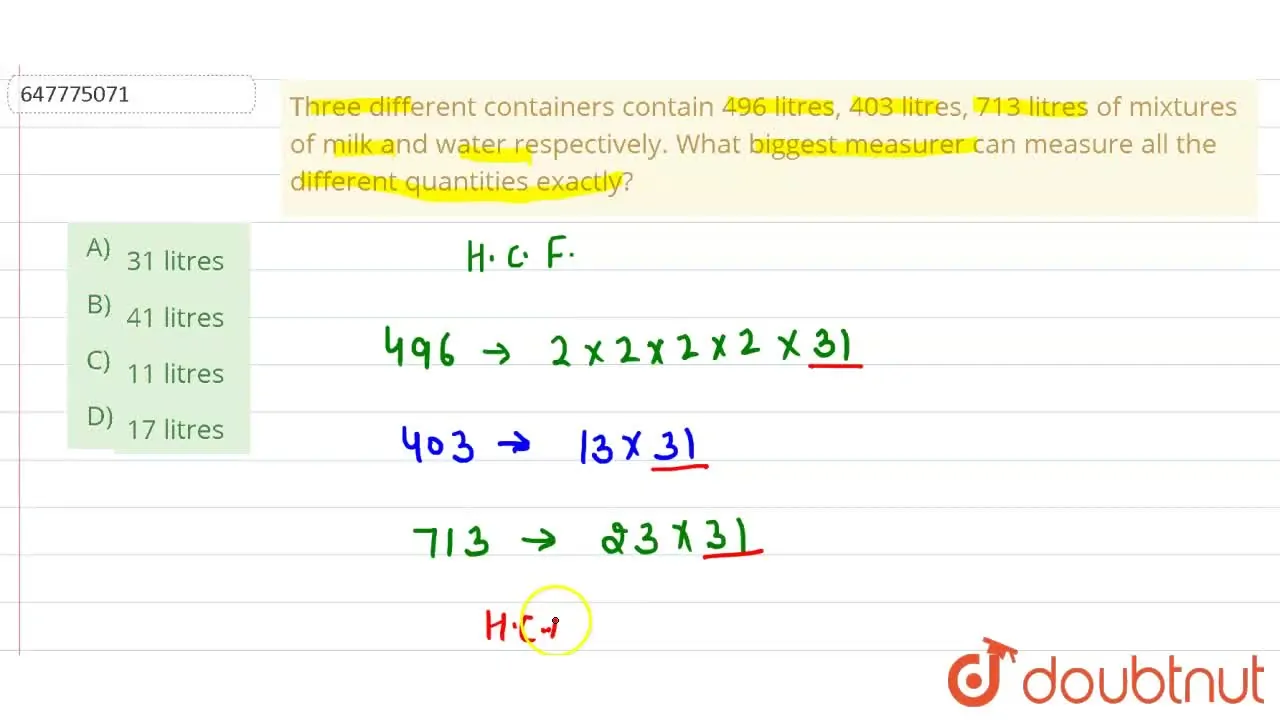 647775071
Three different containers contain 496 litres, 403 litres, 713 litres of mixtures
of milk and water respectively. What biggest measurer can measure all the
different quantities exactly?
A) 31 litres
B) 41 litres
C) 11 litres
D) 17 litres
H.C.F.
496 → 2 × 2 × 2 × 2 × 31
403 → 13 × 31
713 → 23 × 31
H.C.
doubtnut